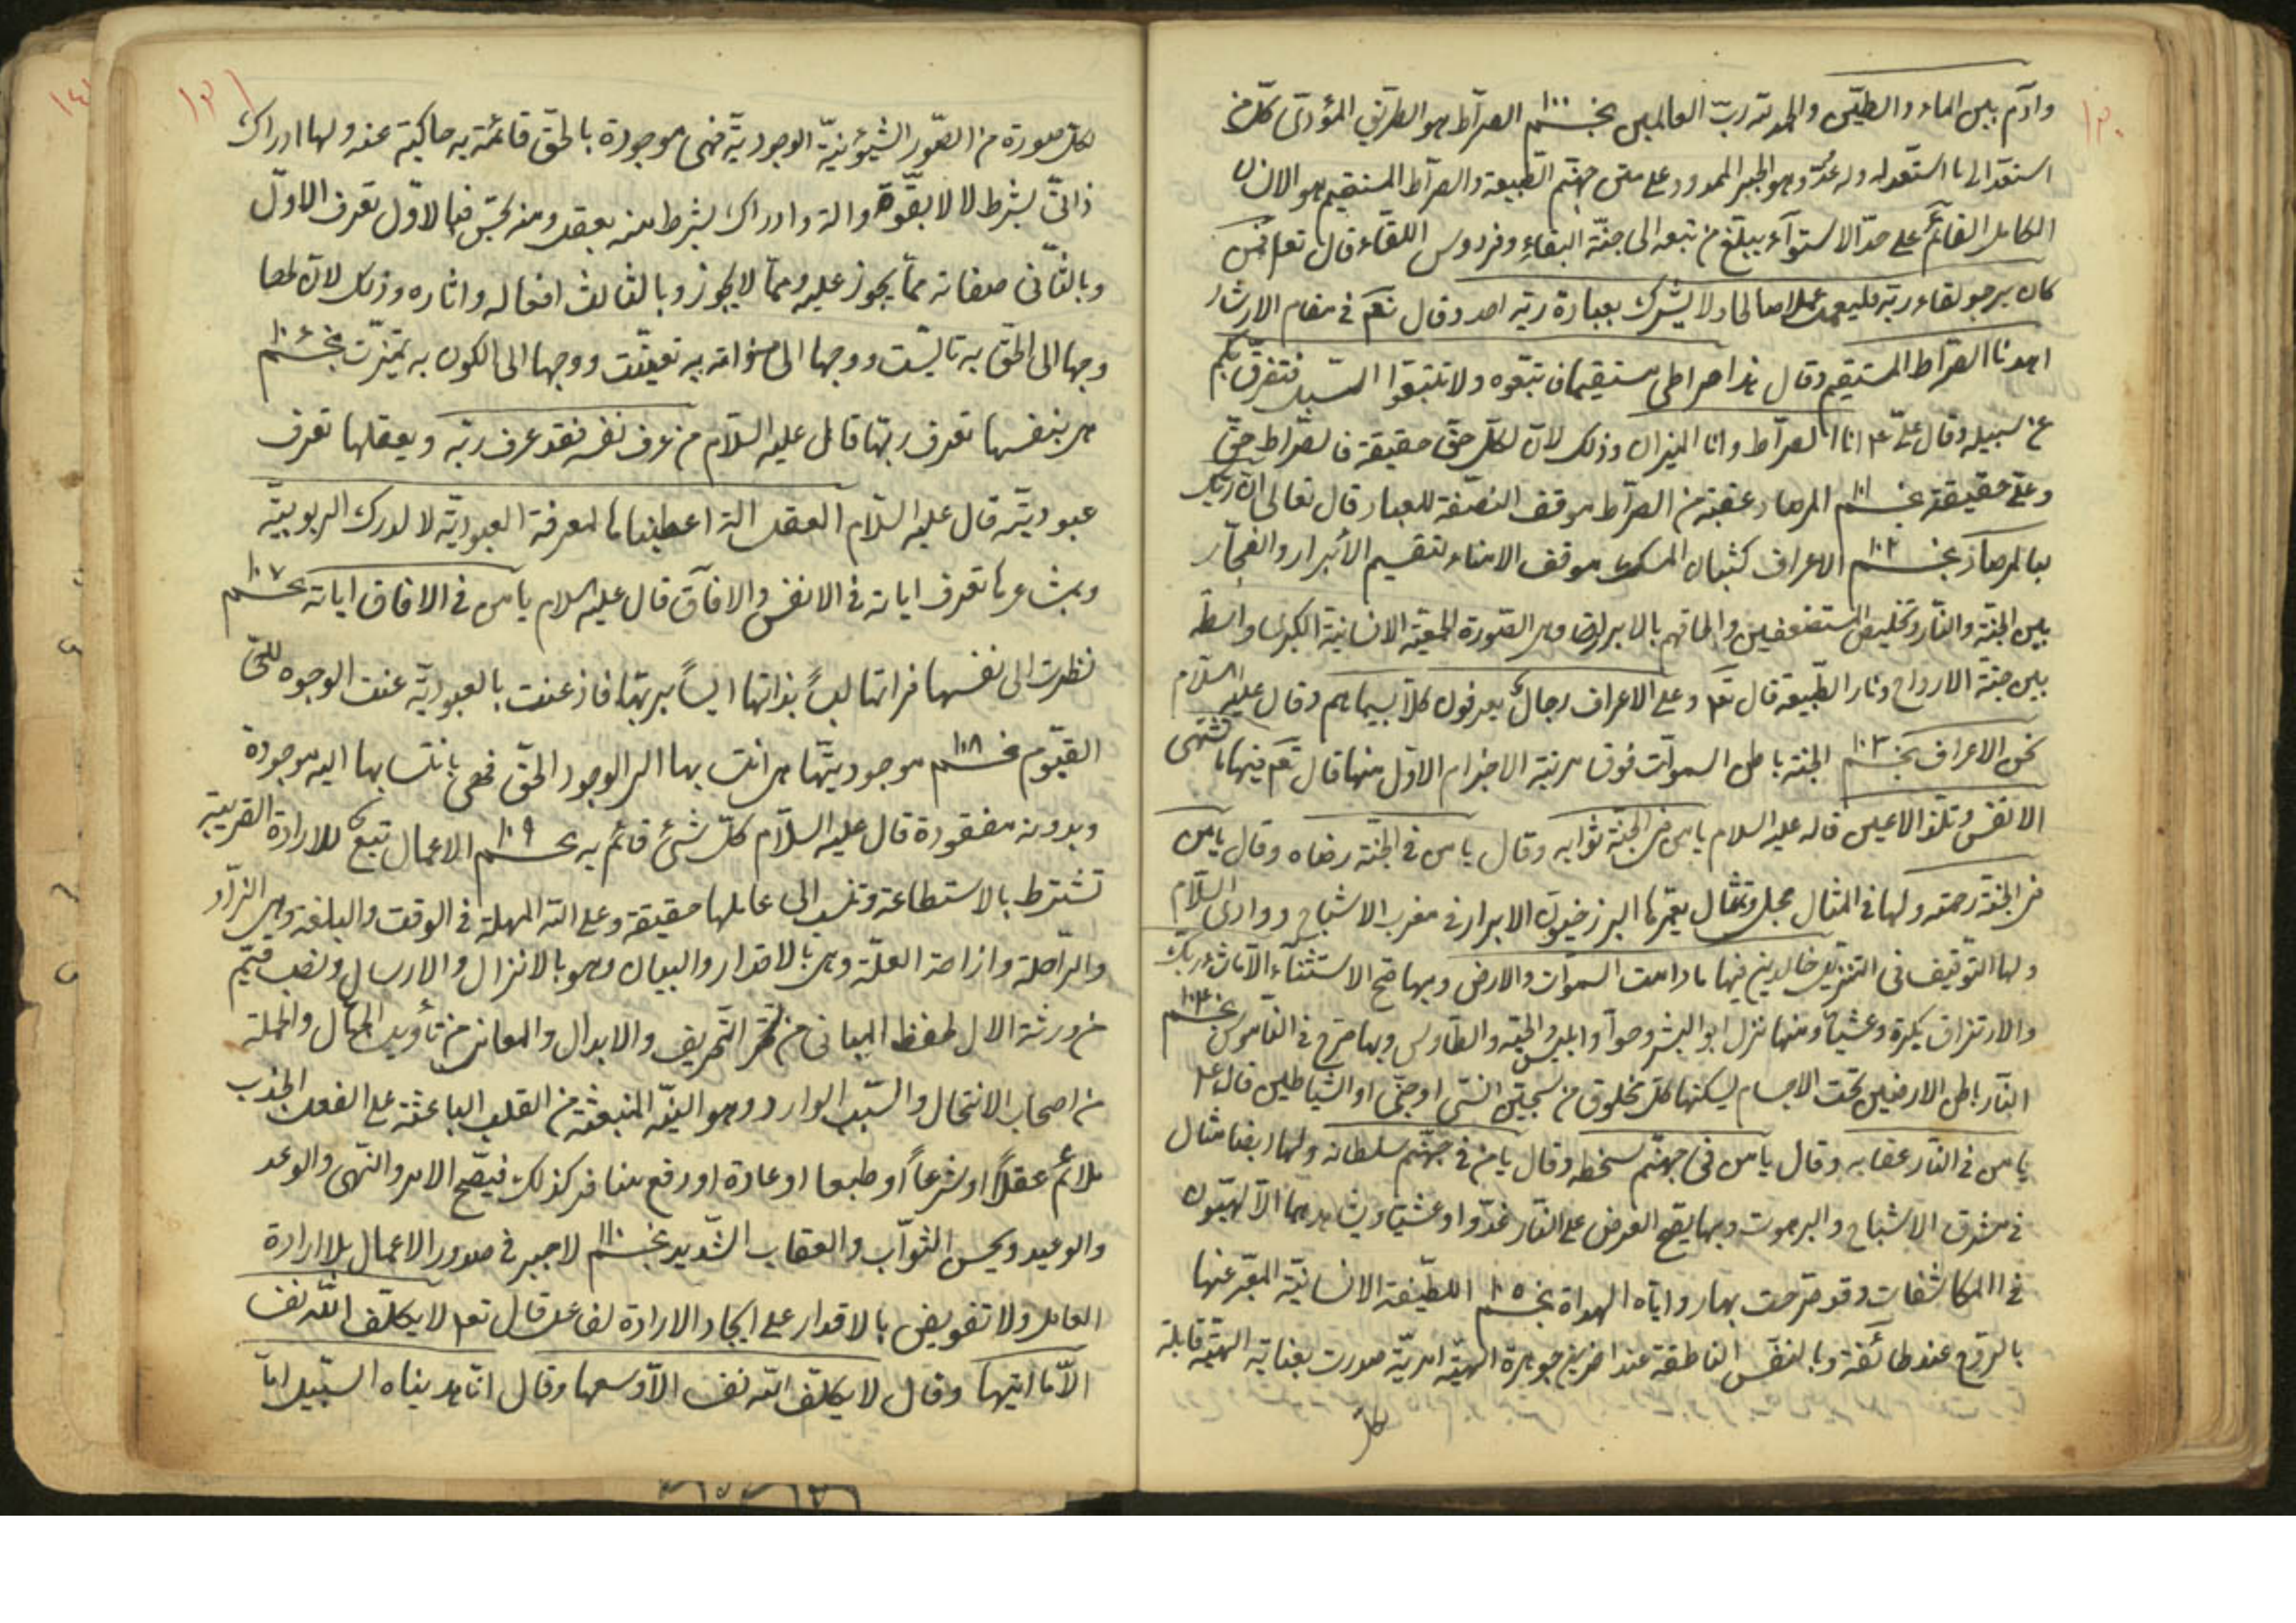 ١٣٠
وآدم بين الماء والطين والحمد لله رب العالمين نجـــم ١٠٠ الصراط هو الطريق المؤدى كل من
استعد الى ما استعد له وله عد وهو الجسر الممدود على متن جهنم الطبيعة والصراط المستقيم هو الانسان
الكامل القائم على حد الاستوآء يبلغ من تبعه الى جنة البقاء وفردوس اللقاء قال تعالى فمن
كان يرجو لقاء ربه فليعمل عملا صالحا ولا يشرك بعبادة ربه احد وقال تعم في مقام الارشاد
اهدنا الصراط المستقيم وقال هذا صراطى مستقيما فاتبعوه ولا تتبعوا السبل فتفرق بكم
عن سبيله وقال على ع انا الصراط وانا الميزان وذلك لان لكل حق حقيقة فالصراط حق
وعلى حقيقة نجـــم ١٠١ المرصاد عقبة من الصراط موقف النصفة للعباد قال تعالى ان ربك
لبالمرصاد نجـــم ١٠٢ الاعراف كثبان المسك موقف الامناء لتقسيم الأبرار والفجار
بين الجنة والنار وتخليص المستضعفين والحاقهم بالابرار وهى الصورة الجمعية الانسانية الكبرى واسطة
بين جنة الارواح ونار الطبيعة قال تع وعلى الاعراف رجال يعرفون كلا بسيماهم وقال عليه السلام
نحن الاعراف نجـــم ١٠٣ الجنة باطن السموات فوق مرتبة الاجرام الاول منها قال تعم فيها ما تشتهى
الانفس وتلذ الاعين قاله عليه السلام يا من فى الجنة ثوابه وقال يا من في الجنة رضاه وقال يا من
فى الجنة رحمته ولها فى المثال مجلى وتمثال يعمرها البرزخيون الابرار فى مغرب الاشباح ووادى السلام
ولها التوقيف فى التنزيل خالدين فيها ما دامت السموات والارض وبها صح الاستثناء الا ما شاء ربك
والارتزاق بكرة وعشيا ومنها نزل ابو البشر وحوآ وابليس والحية والطاوس وبها صرح فى القاموس نجـــم ١٠٤
النار باطن الارضين تحت الاجسام يسكنها كل مخلوق من سجين انسى او جنى او الشياطين قال ع
يا من فى النار عقابه وقال يا من فى جهنم سخطه وقال يا من فى جهنم سلطانه ولها ايضا مثال
فى مشرق الاشباح والبرهوت وبها يصح العرض على النار غدوا وعشيا ويشاهدهما الالهيون
فى المكاشفات وقد صرحت بها روايات الهداة نجـــم ١٠٥ اللطيفة الانسانية المعبر عنها
بالروح عند طائفة وبالنفس الناطقة عند اخرين جوهرة الهية امرية صدرت بعناية الهية قابلة
لكل
١٣١
لكل صورة من الصور الشيئونية الوجودية فهى موجودة بالحق قائمة به حاكية عنه ولها ادراك
ذاتى بشرط لا لا بقوة والة وادراك بشرط منه بعقل ومنه بحس فبالاول تعرف الاول
وبالثانى صفاته مما يجوز عليه ومما لا يجوز وبالثالث افعاله واثاره وذلك لان لها
وجها الى الحق به تايست ووجها الى ذاته به تعينت ووجها الى الكون به تميزت نجـــم ١٠٦
هى بنفسها تعرف ربها قال عليه السلام من عرف نفسه فقد عرف ربه وبعقلها تعرف
عبوديته قال عليه السلام العقل الة اعطيناها لمعرفة العبودية لا لدرك الربوبية
وبمشاعرها تعرف اياته فى الانفس والافاق قال عليه السلام يا من فى الافاق اياته نجـــم ١٠٧
نظرت الى نفسها فراتها ليسا بذاتها ايسا بربها فاذعنت بالعبودية عنت الوجوه للحى
القيوم نجـــم ١٠٨ موجوديتها هى انتسابها الى الوجود الحق فهى بانتسابها اليه موجودة
وبدونه مفقودة قال عليه السلام كل شئ قائم به نجـــم ١٠٩ الاعمال تبع للارادة القريبة
تشترط بالاستطاعة وتنسب الى عاملها حقيقة وعلى الله المهلة فى الوقت والبلغة وهى الزاد
والراحلة وازاحة العلة وهى بالاقدار والبيان وهو بالانزال والارسال ونصب قيم
من ورثة الال لحفظ المبانى من التحريف والابدال والمعانى من تأويل الجهال والحملة
من اصحاب الانتحال والسبب الوارد وهو النية المنبعثة من القلب الباعثة على الفعل لجذب
ملائم عقلا او شرعا او طبعا او عادة او رفع منافر كذلك فيصح الامر والنهى والوعد
والوعيد ويحسن الثواب والعقاب الشديد نجـــم ١١٠ لا جبر فى صدور الاعمال بلا ارادة
العامل ولا تفويض بالاقدار على ايجاد الارادة لفاعل قال تع لا يكلف الله نفسا
الا ما اتيها وقال لا يكلف الله نفسا الا وسعها وقال انا هديناه السبيل اما